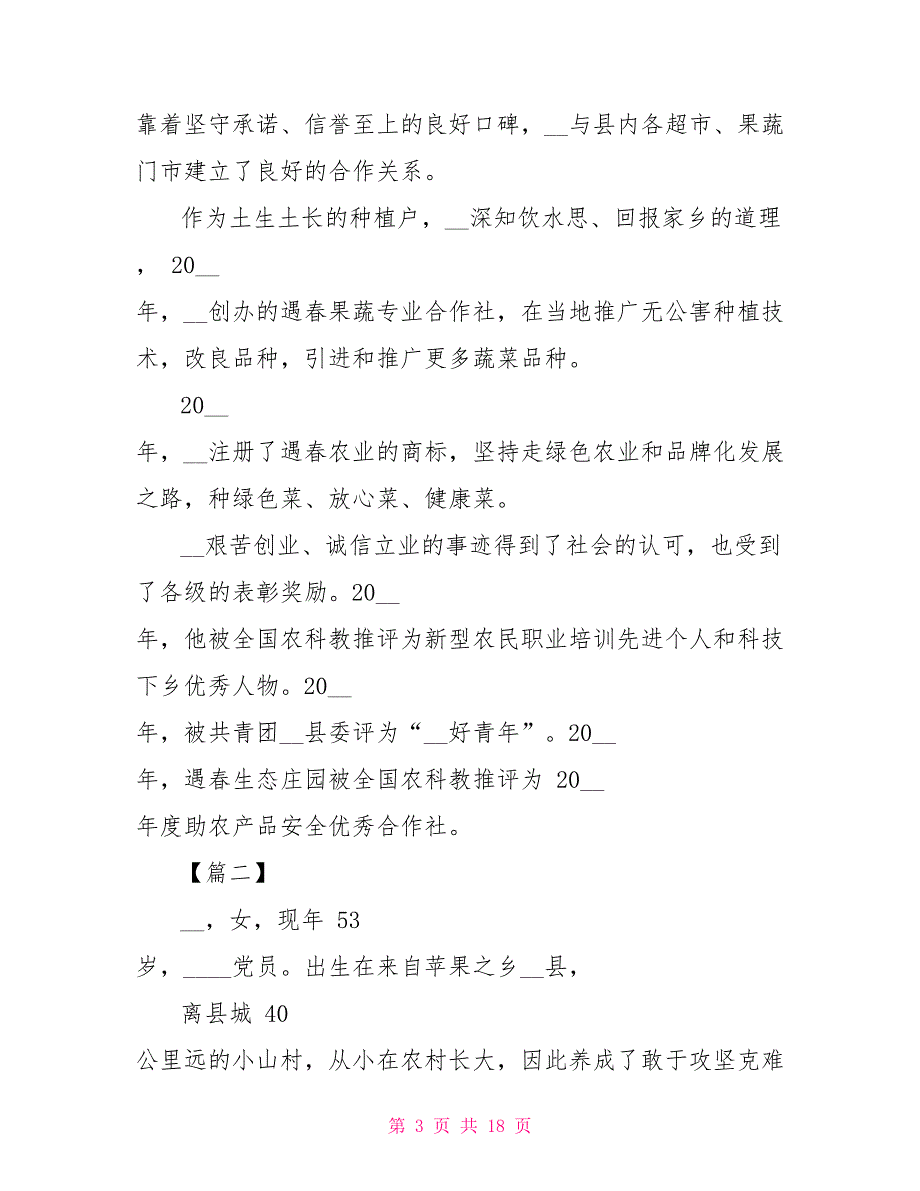 靠着坚守承诺、信誉至上的良好口碑，__与县内各超市、果蔬
门市建立了良好的合作关系。
作为土生土长的种植户，__深知饮水思、回报家乡的道理
， 20__
年，__创办的遇春果蔬专业合作社，在当地推广无公害种植技
术，改良品种，引进和推广更多蔬菜品种。
20__
年，__注册了遇春农业的商标，坚持走绿色农业和品牌化发展
之路，种绿色菜、放心菜、健康菜。
__艰苦创业、诚信立业的事迹得到了社会的认可，也受到
了各级的表彰奖励。20__
年，他被全国农科教推评为新型农民职业培训先进个人和科技
下乡优秀人物。20__
年，被共青团__县委评为“__好青年”。20__
年，遇春生态庄园被全国农科教推评为 20__
年度助农产品安全优秀合作社。
【篇二】
__，女，现年 53
岁，____党员。出生在来自苹果之乡__县，
离县城 40
公里远的小山村，从小在农村长大，因此养成了敢于攻坚克难
第 3 页 共 18 页